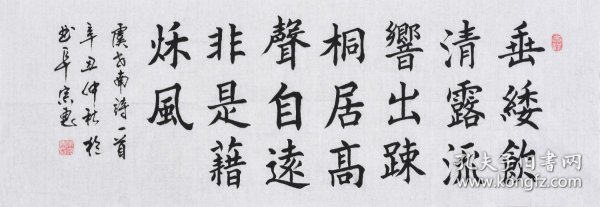 垂緌飲
清露流
響出踈
桐居高
聲自遠
非是藉
秌風
虞世南詩一首
辛丑仲秋於
孔夫子旧书网
www.kongfz.com